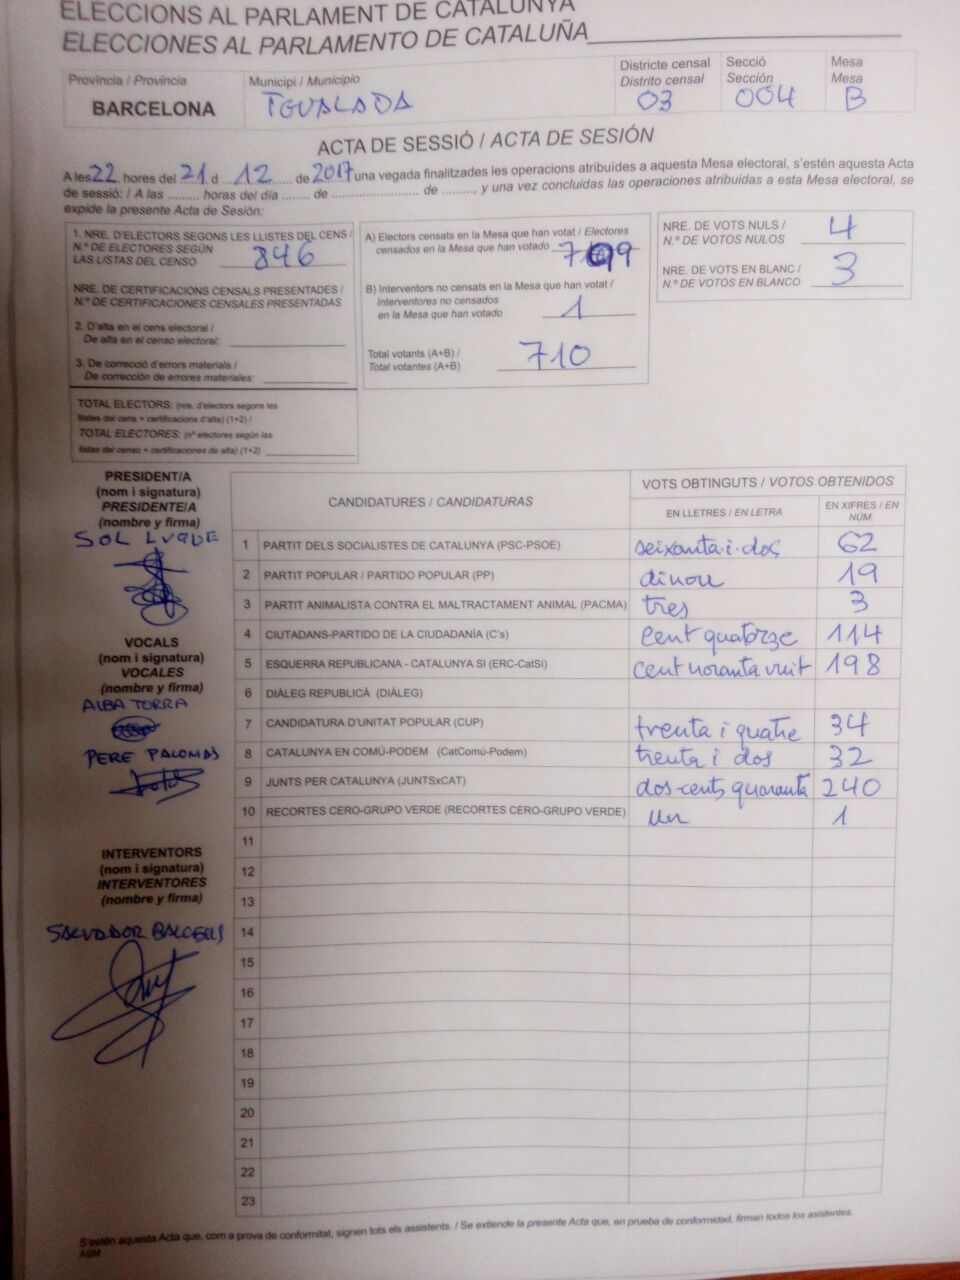 ELECCIONS AL PARLAMENT DE CATALUNYA
ELECCIONES AL PARLAMENTO DE CATALUÑA
Província / Provincia
BARCELONA
Municipi / Municipio
IGUALADA
Districte censal
Distrito censal
03
Secció
Sección
004
Mesa
Mesa
B
ACTA DE SESSIÓ / ACTA DE SESIÓN
A les 22 hores del 21 d 12 de 2017 una vegada finalitzades les operacions atribuïdes a aquesta Mesa electoral, s'estén aquesta Acta
de sessió: / A las ......... horas del día ....... de ...................... de ........, y una vez concluidas las operaciones atribuidas a esta Mesa electoral, se
expide la presente Acta de Sesión:
1. NRE. D'ELECTORS SEGONS LES LLISTES DEL CENS /
N.º DE ELECTORES SEGÚN
LAS LISTAS DEL CENSO 846
NRE. DE CERTIFICACIONS CENSALS PRESENTADES /
N.º DE CERTIFICACIONES CENSALES PRESENTADAS
2. D'alta en el cens electoral /
De alta en el censo electoral:
3. De correcció d'errors materials /
De corrección de errores materiales:
TOTAL ELECTORS: (nre. d'electors segons les
llistes del cens + certificacions d'alta) (1+2) /
TOTAL ELECTORES: (nº electores según las
listas del censo + certificaciones de alta) (1+2)
A) Electors censats en la Mesa que han votat / Electores
censados en la Mesa que han votado 709
B) Interventors no censats en la Mesa que han votat /
Interventores no censados
en la Mesa que han votado 1
Total votants (A+B) /
Total votantes (A+B) 710
NRE. DE VOTS NULS /
N.º DE VOTOS NULOS 4
NRE. DE VOTS EN BLANC /
N.º DE VOTOS EN BLANCO 3
PRESIDENT/A
(nom i signatura)
PRESIDENTE/A
(nombre y firma)
SOL LUQUE
VOCALS
(nom i signatura)
VOCALES
(nombre y firma)
ALBA TORRA
PERE PALOMAS
INTERVENTORS
(nom i signatura)
INTERVENTORES
(nombre y firma)
SALVADOR BALCELLS
CANDIDATURES / CANDIDATURAS
VOTS OBTINGUTS / VOTOS OBTENIDOS
EN LLETRES / EN LETRA
EN XIFRES / EN NÚM.
1 PARTIT DELS SOCIALISTES DE CATALUNYA (PSC-PSOE) seixanta-i-dos 62
2 PARTIT POPULAR / PARTIDO POPULAR (PP) dinou 19
3 PARTIT ANIMALISTA CONTRA EL MALTRACTAMENT ANIMAL (PACMA) tres 3
4 CIUTADANS-PARTIDO DE LA CIUDADANÍA (C's) cent quatorze 114
5 ESQUERRA REPUBLICANA - CATALUNYA SI (ERC-CatSí) cent noranta vuit 198
6 DIÀLEG REPUBLICÀ (DIÀLEG)
7 CANDIDATURA D'UNITAT POPULAR (CUP) trenta i quatre 34
8 CATALUNYA EN COMÚ-PODEM (CatComú-Podem) trenta i dos 32
9 JUNTS PER CATALUNYA (JUNTSxCAT) dos-cents quaranta 240
10 RECORTES CERO-GRUPO VERDE (RECORTES CERO-GRUPO VERDE) un 1
11
12
13
14
15
16
17
18
19
20
21
22
23
S'estén aquesta Acta que, com a prova de conformitat, signen tots els assistents. / Se extiende la presente Acta que, en prueba de conformidad, firman todos los asistentes.
ASM